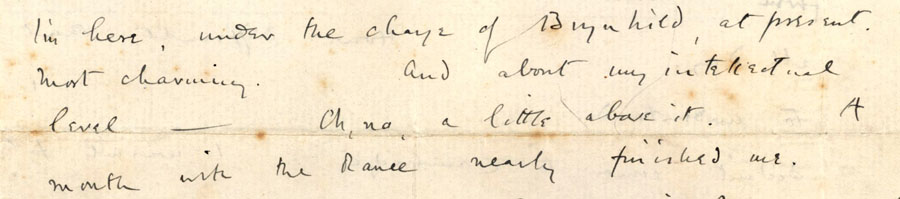 I'm here, under the charge of Brynhild, at present.
Most charming. And about my intellectual
level — Oh, no, a little above it. A
month with the Ranee nearly finished me.